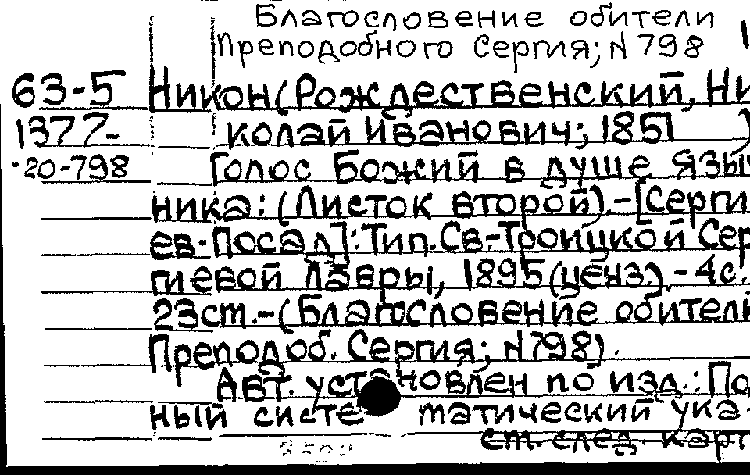 Благословение обители
Преподобного Сергия; N 798
63-5 Никон (Рождественский, Ни
1377- колай Иванович; 1851 )
-20-798 Голос Божий в душе язы
ника: (Листок второй).-[Серги
ев-Посад]: Тип. Св.-Троицкой Сер
гиевой Лавры, 1895 (ценз). - 4с.
23см.-(Благословение обители
Преподоб. Сергия; N 798).
Авт. установлен по изд.: По
ный систематический ука-
см. след. карт